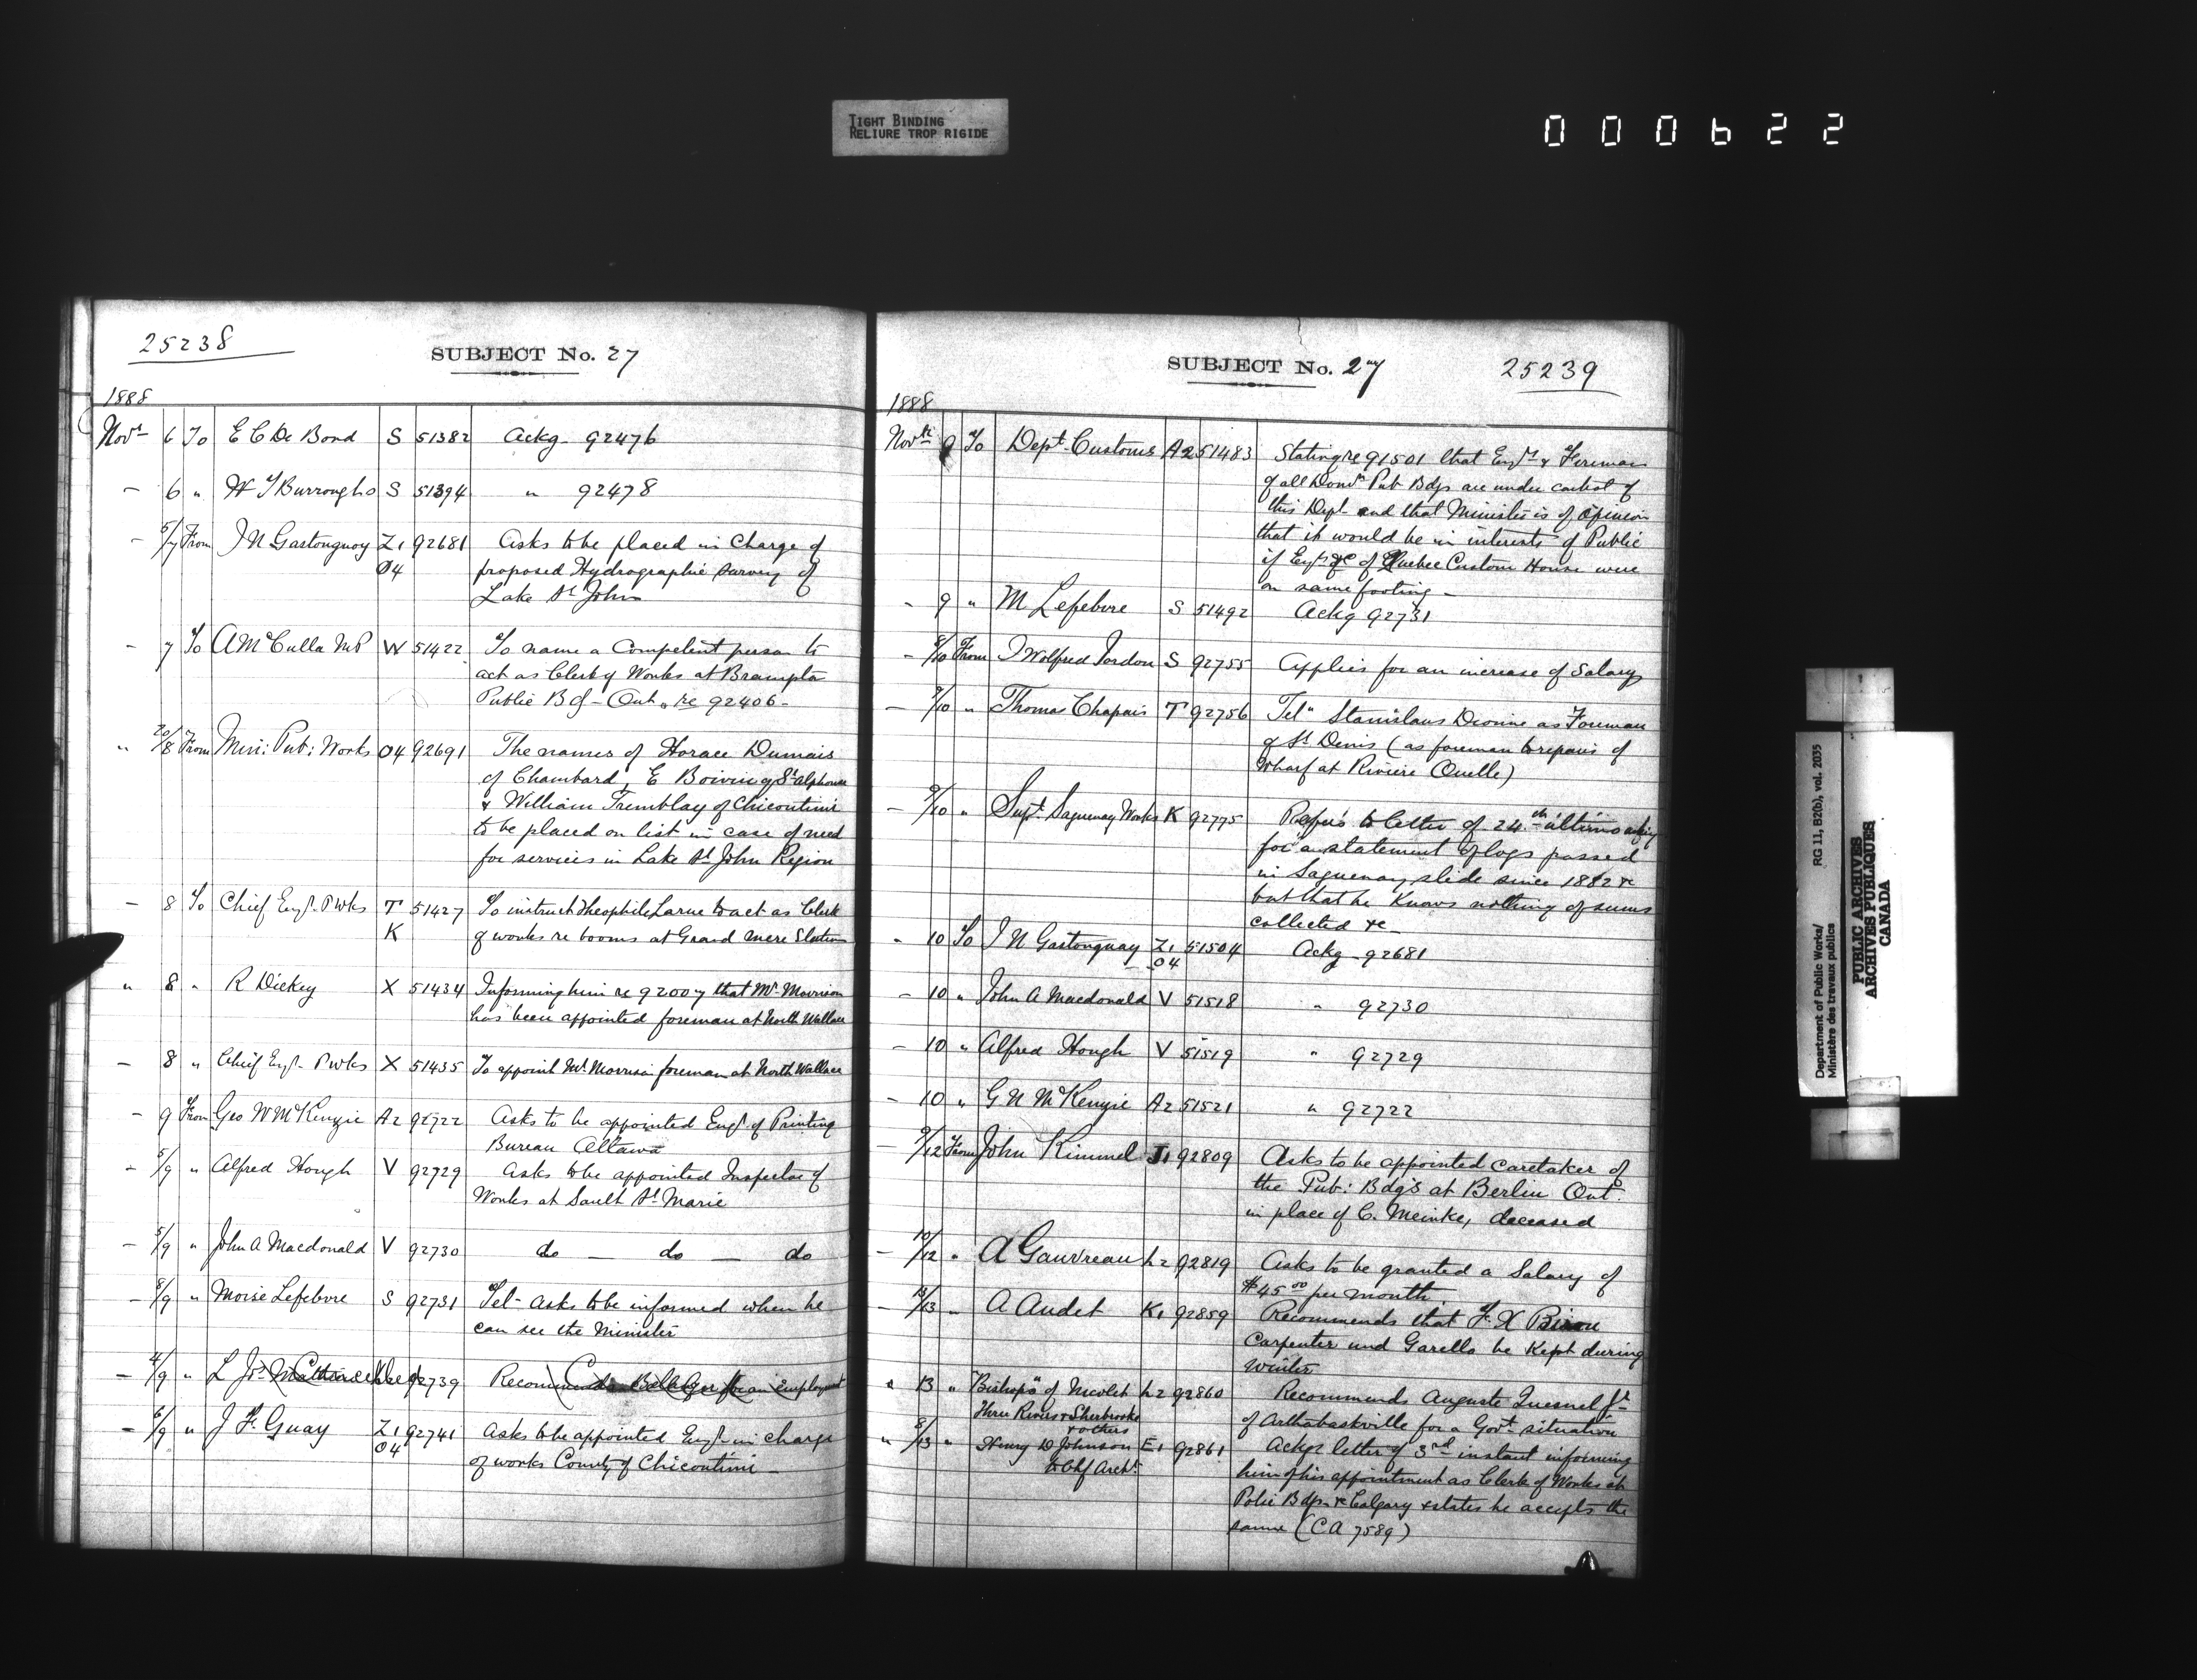 TIGHT BINDING
RELIURE TROP RIGIDE
000622
25238
SUBJECT No. 27
1888
Novr 6 To E C De Bond S 51382 Ackg 92476
- 6 " W J Burroughs S 51394 " 92478
- 5/7 From J N Gastonguay Z1 92681 Asks to be placed in charge of
O4 proposed Hydrographic survey of
Lake St John
- 7 To A McCulla MP W 51422 To name a Competent person to
act as Clerk of Works at Brampton
Public Bdg - Ont. re 92406 -
" 20/8 From Min: Pub: Works O4 92691 The names of Horace Dumais
of Chambord, E Boivin of St Alphonse
& William Tremblay of Chicoutimi
to be placed on list in case of need
for services in Lake St John Region
- 8 To Chief Engr. P Wks T 51427 To instruct Theophile Larue to act as Clerk
K of works re booms at Grand Mere Station
" 8 " R Dickey X 51434 Informing him re 92007 that Mr Morrison
has been appointed foreman at North Wallace
- 8 " Chief Engr. P Wks X 51435 To appoint Mr. Morrison foreman at North Wallace
- 9 From Geo W McKenzie A2 92722 Asks to be appointed Engr. of Printing
Bureau Ottawa
- 5/9 " Alfred Hough V 92729 Asks to be appointed Inspector of
Works at Sault St Marie
- 5/9 " John A Macdonald V 92730 do — do — do
- 8/9 " Moise Lefebvre S 92731 Tel - asks to be informed when he
can see the Minister
- 4/9 " L 92739 Recommends for an employment
- 6/9 " J F. Guay Z1 92741 Asks to be appointed Engr. in charge
O4 of works County of Chicoutimi -
SUBJECT No. 27
25239
1888
Novr 9 To Dept. Customs A2 51483 Stating re 91501 that Engrs & Firemen
of all Domn Pub Bdgs are under control of
this Dept - and that Minister is of opinion
that it would be in interests of Public
if Engrs &c of Quebec Custom House were
on same footing -
- 9 " M Lefebvre S 51492 Ackg 92731
- 8/10 From J Wolfred Jordon S 92755 Applies for an increase of Salary
- 9/10 " Thomas Chapais T 92756 Teln Stanislaus Dionne as Foreman
of St Denis (as foreman to repairs of
Wharf at Riviere Ouelle)
- 9/10 " Supt. Saguenay Works K 92775 Refers to letter of 24th ultimo asking
for a statement of logs passed
in Saguenay slide since 1882 &c
but that he knows nothing of sums
collected &c -
" 10 To J N Gastonguay Z1 51504 Ackg - 92681
O4
- 10 " John A Macdonald V 51518 " 92730
- 10 " Alfred Hough V 51519 " 92729
- 10 " G N McKenzie A2 51521 " 92722
- 9/12 From John Kimmel J1 92809 Asks to be appointed caretaker of
the Pub: Bdgs at Berlin Ont.
in place of C. Meinke, deceased
- 10/12 " A Gauvreau L2 92819 Asks to be granted a Salary of
$45 00 per month.
- 13/13 " A Audet K1 92859 Recommends that F. X
Carpenter and Garello be kept during
winter
" 13 " "Bishops" of Nicolet L2 92860 Recommends Auguste Quesnel Jr
Three Rivers & Sherbrooke of Arthabaskville for a Govt. situation
& others
" 8/13 " Henry D Johnson E1 92861 Ackgs letter of 3rd instant informing
to Chf Archt. him of his appointment as Clerk of Works at
Police Bdgs &c Calgary & states he accepts the
same (CA 7589)
Department of Public Works/ RG 11, B2(b), vol. 2035
Ministère des travaux publics
PUBLIC ARCHIVES
ARCHIVES PUBLIQUES
CANADA